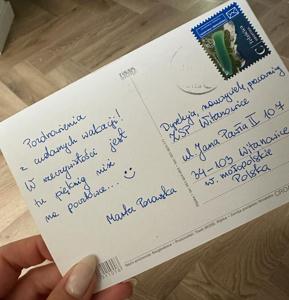 Pozdrowienia
z cudownych wakacji!
W rzeczywistości jest
tu piękniej niż
na pocztówce...
Marta
Dyrekcja, nauczyciele, pracownicy
ZSP Witanowice
ul Jana Pawła II 107
34-103 Witanowice
w. małopolskie
Polska